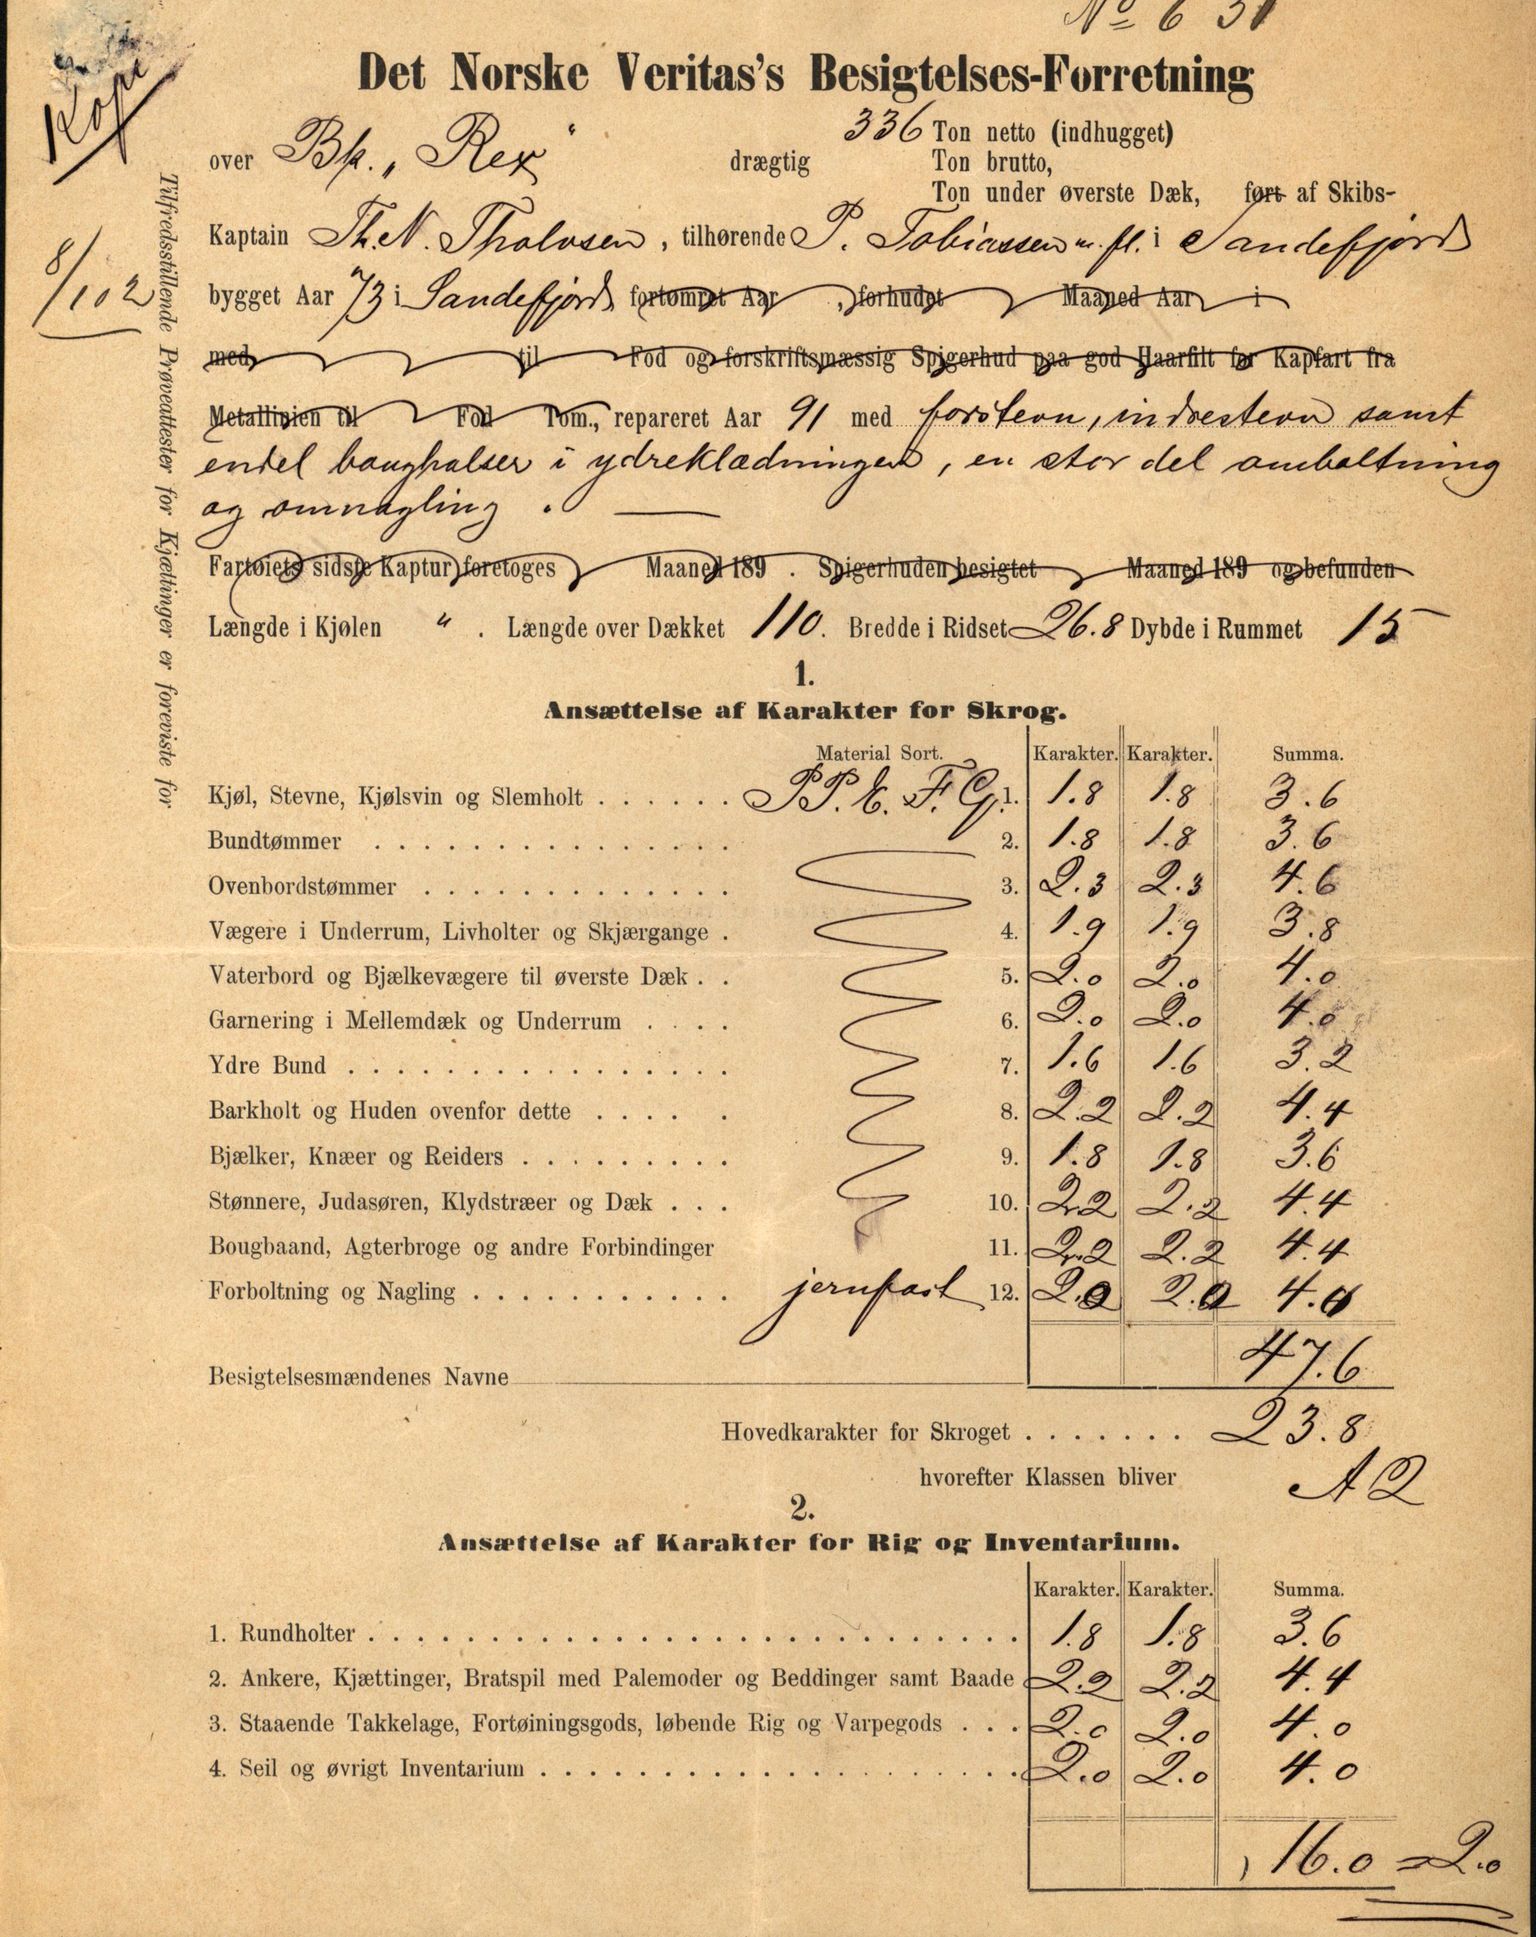 No 6 31
Kopi
8/102
Tilfredsstillende Prøveattester for Kjættinger er foreviste for
Det Norske Veritas's Besigtelses-Forretning
336 Ton netto (indhugget)
over Bk. „Rex“ drægtig Ton brutto,
Ton under øverste Dæk, ført af Skibs-
Kaptain Th. N. Tholvsen, tilhørende P. Tobiassen m. fl. i Sandefjord
bygget Aar 73 i Sandefjord fortømret Aar , forhudet Maaned Aar i
med til Fod og forskriftsmæssig Spigerhud paa god Haarfilt før Kapfart fra
Metallinien til Fod Tom., repareret Aar 91 med forstevn, indrestevn samt
endel boughalser i ydreklædningen, en stor del ombaltning
og omnagling. —
Fartøiets sidste Kaptur foretoges Maaned 189 . Spigerhuden besigtet Maaned 189 og befunden
Længde i Kjølen " . Længde over Dækket 110. Bredde i Ridset 26.8 Dybde i Rummet 15
1.
Ansættelse af Karakter for Skrog.
Material Sort. Karakter. Karakter. Summa.
Kjøl, Stevne, Kjølsvin og Slemholt . . . . . . PP. E. F. G. 1. 1.8 1.8 3.6
Bundtømmer . . . . . . . . . . . . . . . 2. 1.8 1.8 3.6
Ovenbordstømmer . . . . . . . . . . . . . 3. 2.3 2.3 4.6
Vægere i Underrum, Livholter og Skjærgange . 4. 1.9 1.9 3.8
Vaterbord og Bjælkevægere til øverste Dæk . . 5. 2.0 2.0 4.0
Garnering i Mellemdæk og Underrum . . . . 6. 2.0 2.0 4.0
Ydre Bund . . . . . . . . . . . . . . . . 7. 1.6 1.6 3.2
Barkholt og Huden ovenfor dette . . . . . 8. 2.2 2.2 4.4
Bjælker, Knæer og Reiders . . . . . . . . . 9. 1.8 1.8 3.6
Stønnere, Judasøren, Klydstræer og Dæk . . . 10. 2.2 2.2 4.4
Bougbaand, Agterbroge og andre Forbindinger 11. 2.2 2.2 4.4
Forboltning og Nagling . . . . . . . . . . . jernfast 12. 2.0 2.0 4.0
47.6
Besigtelsesmændenes Navne
Hovedkarakter for Skroget . . . . . . . 23.8
hvorefter Klassen bliver A 2
2.
Ansættelse af Karakter for Rig og Inventarium.
Karakter. Karakter. Summa.
1. Rundholter . . . . . . . . . . . . . . . . . . . . . . . . . . . 1.8 1.8 3.6
2. Ankere, Kjættinger, Bratspil med Palemoder og Beddinger samt Baade 2.2 2.2 4.4
3. Staaende Takkelage, Fortøiningsgods, løbende Rig og Varpegods . . . 2.0 2.0 4.0
4. Seil og øvrigt Inventarium . . . . . . . . . . . . . . . . . . . . 2.0 2.0 4.0
16.0 = 2.0